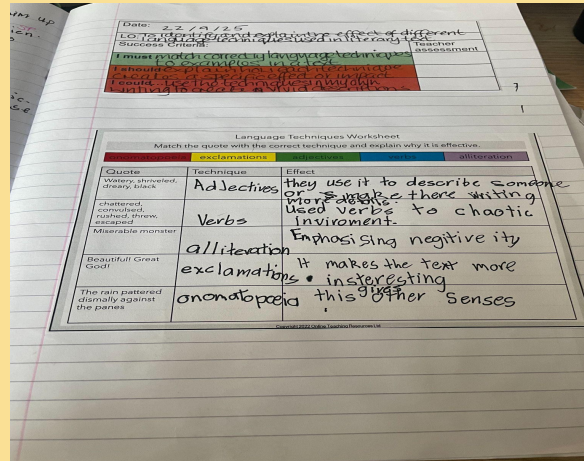 um up
ien.
Date: 22/9/25
LO: To identify and explain the effect of different
language techniques used in literary text
Success Criteria:
Teacher
assessment
I must match correctly language techniques
to examples in a text
I should explain how each technique
creates a specific effect or impact
I could use the techniques in my own
writing to create
Language Techniques Worksheet
Match the quote with the correct technique and explain why it is effective.
onomatopoeia exclamations adjectives verbs alliteration
Quote Technique Effect
Watery, shriveled,
dreary, black
Adjectives
they use it to describe someone
or make there writing
chattered,
convulsed,
rushed, threw,
escaped
Verbs
used verbs to chaotic
inviroment.
Miserable monster
alliteration
Emphasising negitive ity
Beautiful! Great
God!
exclamations.
It makes the text more
insteresting
The rain pattered
dismally against
the panes
onomatopoeia
this gives other senses
Copyright 2022 Online Teaching Resources Ltd